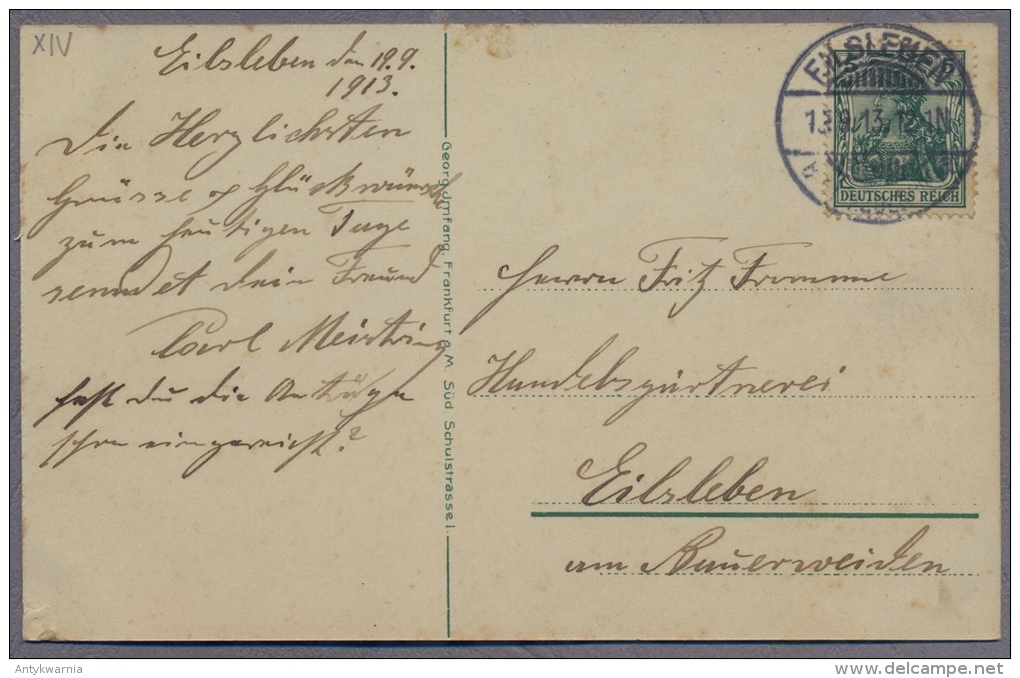 XIV
Eilsleben den 19.9.
1913.
Die Herzlichsten
Grüsse & Glückwünsche
zum heutigen Tage
sendet dein Freund
Carl Meistring
hast du die Anträge
schon eingereicht?
Georg Umfang, Frankfurt a. M. Süd Schulstrasse 1.
EILSLEBEN
13.9.13.12-1N
a
5
DEUTSCHES REICH
Herrn Fritz Fromme
Handelsgärtnerei
Eilsleben
am
Antykwarnia
delcampe.net